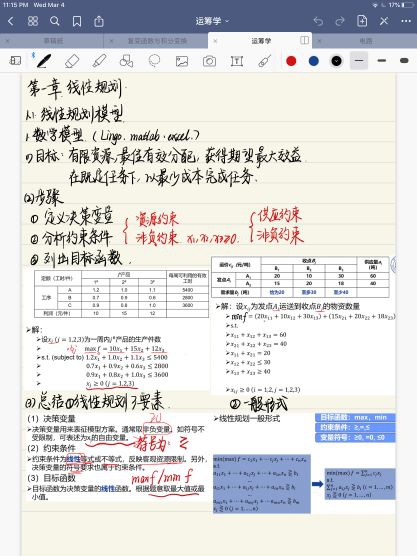 11:15 PM Wed Mar 4
17%
运筹学
草稿纸
复变函数与积分变换
运筹学
电路
第一章 线性规划
1.1 线性规划模型
1. 数学模型 (Lingo. matlab. excel.)
(1) 目标: 有限资源, 最佳有效分配, 获得期望最大效益.
在既定任务下, 以最少成本完成任务.
(2) 步骤
① 定义决策变量
② 分析约束条件
资源约束
非负约束
供应约束
非负约束
③ 列出目标函数
定额（工时/件）
j产品
每周可利用的有效工时
1# 2# 3#
工序
A 1.2 1.0 1.1 5400
B 0.7 0.9 0.6 2800
C 0.9 0.8 1.0 3600
利润（元/件） 10 15 12
运价cij（元/吨）
收点Bj
供应量ai（吨）
B1 B2 B3
发点Ai
A1 20 10 30 60
A2 15 20 18 40
需求量bj（吨） 恰为20 至多30 至少40
➢解:
➢设xj (j = 1,2,3)为一周内j#产品的生产件数
max f = 10x1 + 15x2 + 12x3
➢s.t. (subject to) 1.2x1 + 1.0x2 + 1.1x3 ≤ 5400
➢ 0.7x1 + 0.9x2 + 0.6x3 ≤ 2800
➢ 0.9x1 + 0.8x2 + 1.0x3 ≤ 3600
➢ xj ≥ 0 (j = 1,2,3)
➢解: 设xij为发点Ai运送到收点Bj的物资数量
➢min f = (20x11 + 10x12 + 30x13) + (15x21 + 20x22 + 18x23)
➢s.t.
➢x11 + x12 + x13 = 60
➢x21 + x22 + x23 = 40
➢x11 + x21 = 20
➢x12 + x22 ≤ 30
➢x13 + x23 ≥ 40
➢xij ≥ 0 (i = 1,2, j = 1,2,3)
(3) 总结: 线性规划3要素.
（1）决策变量
➢决策变量用来表征模型方案。通常取非负变量，如符号不受限制，可表述为x的自由变量。
（2）约束条件
➢约束条件为线性等式或不等式，反映客观资源限制。另外，决策变量的符号要求也属于约束条件。
（3）目标函数
➢目标函数为决策变量的线性函数。根据题意取最大值或最小值。
max f/min f
一般形式
➢线性规划一般形式
目标函数：max，min
约束条件：≥,=,≤
变量符号：≥0, =0, ≤0